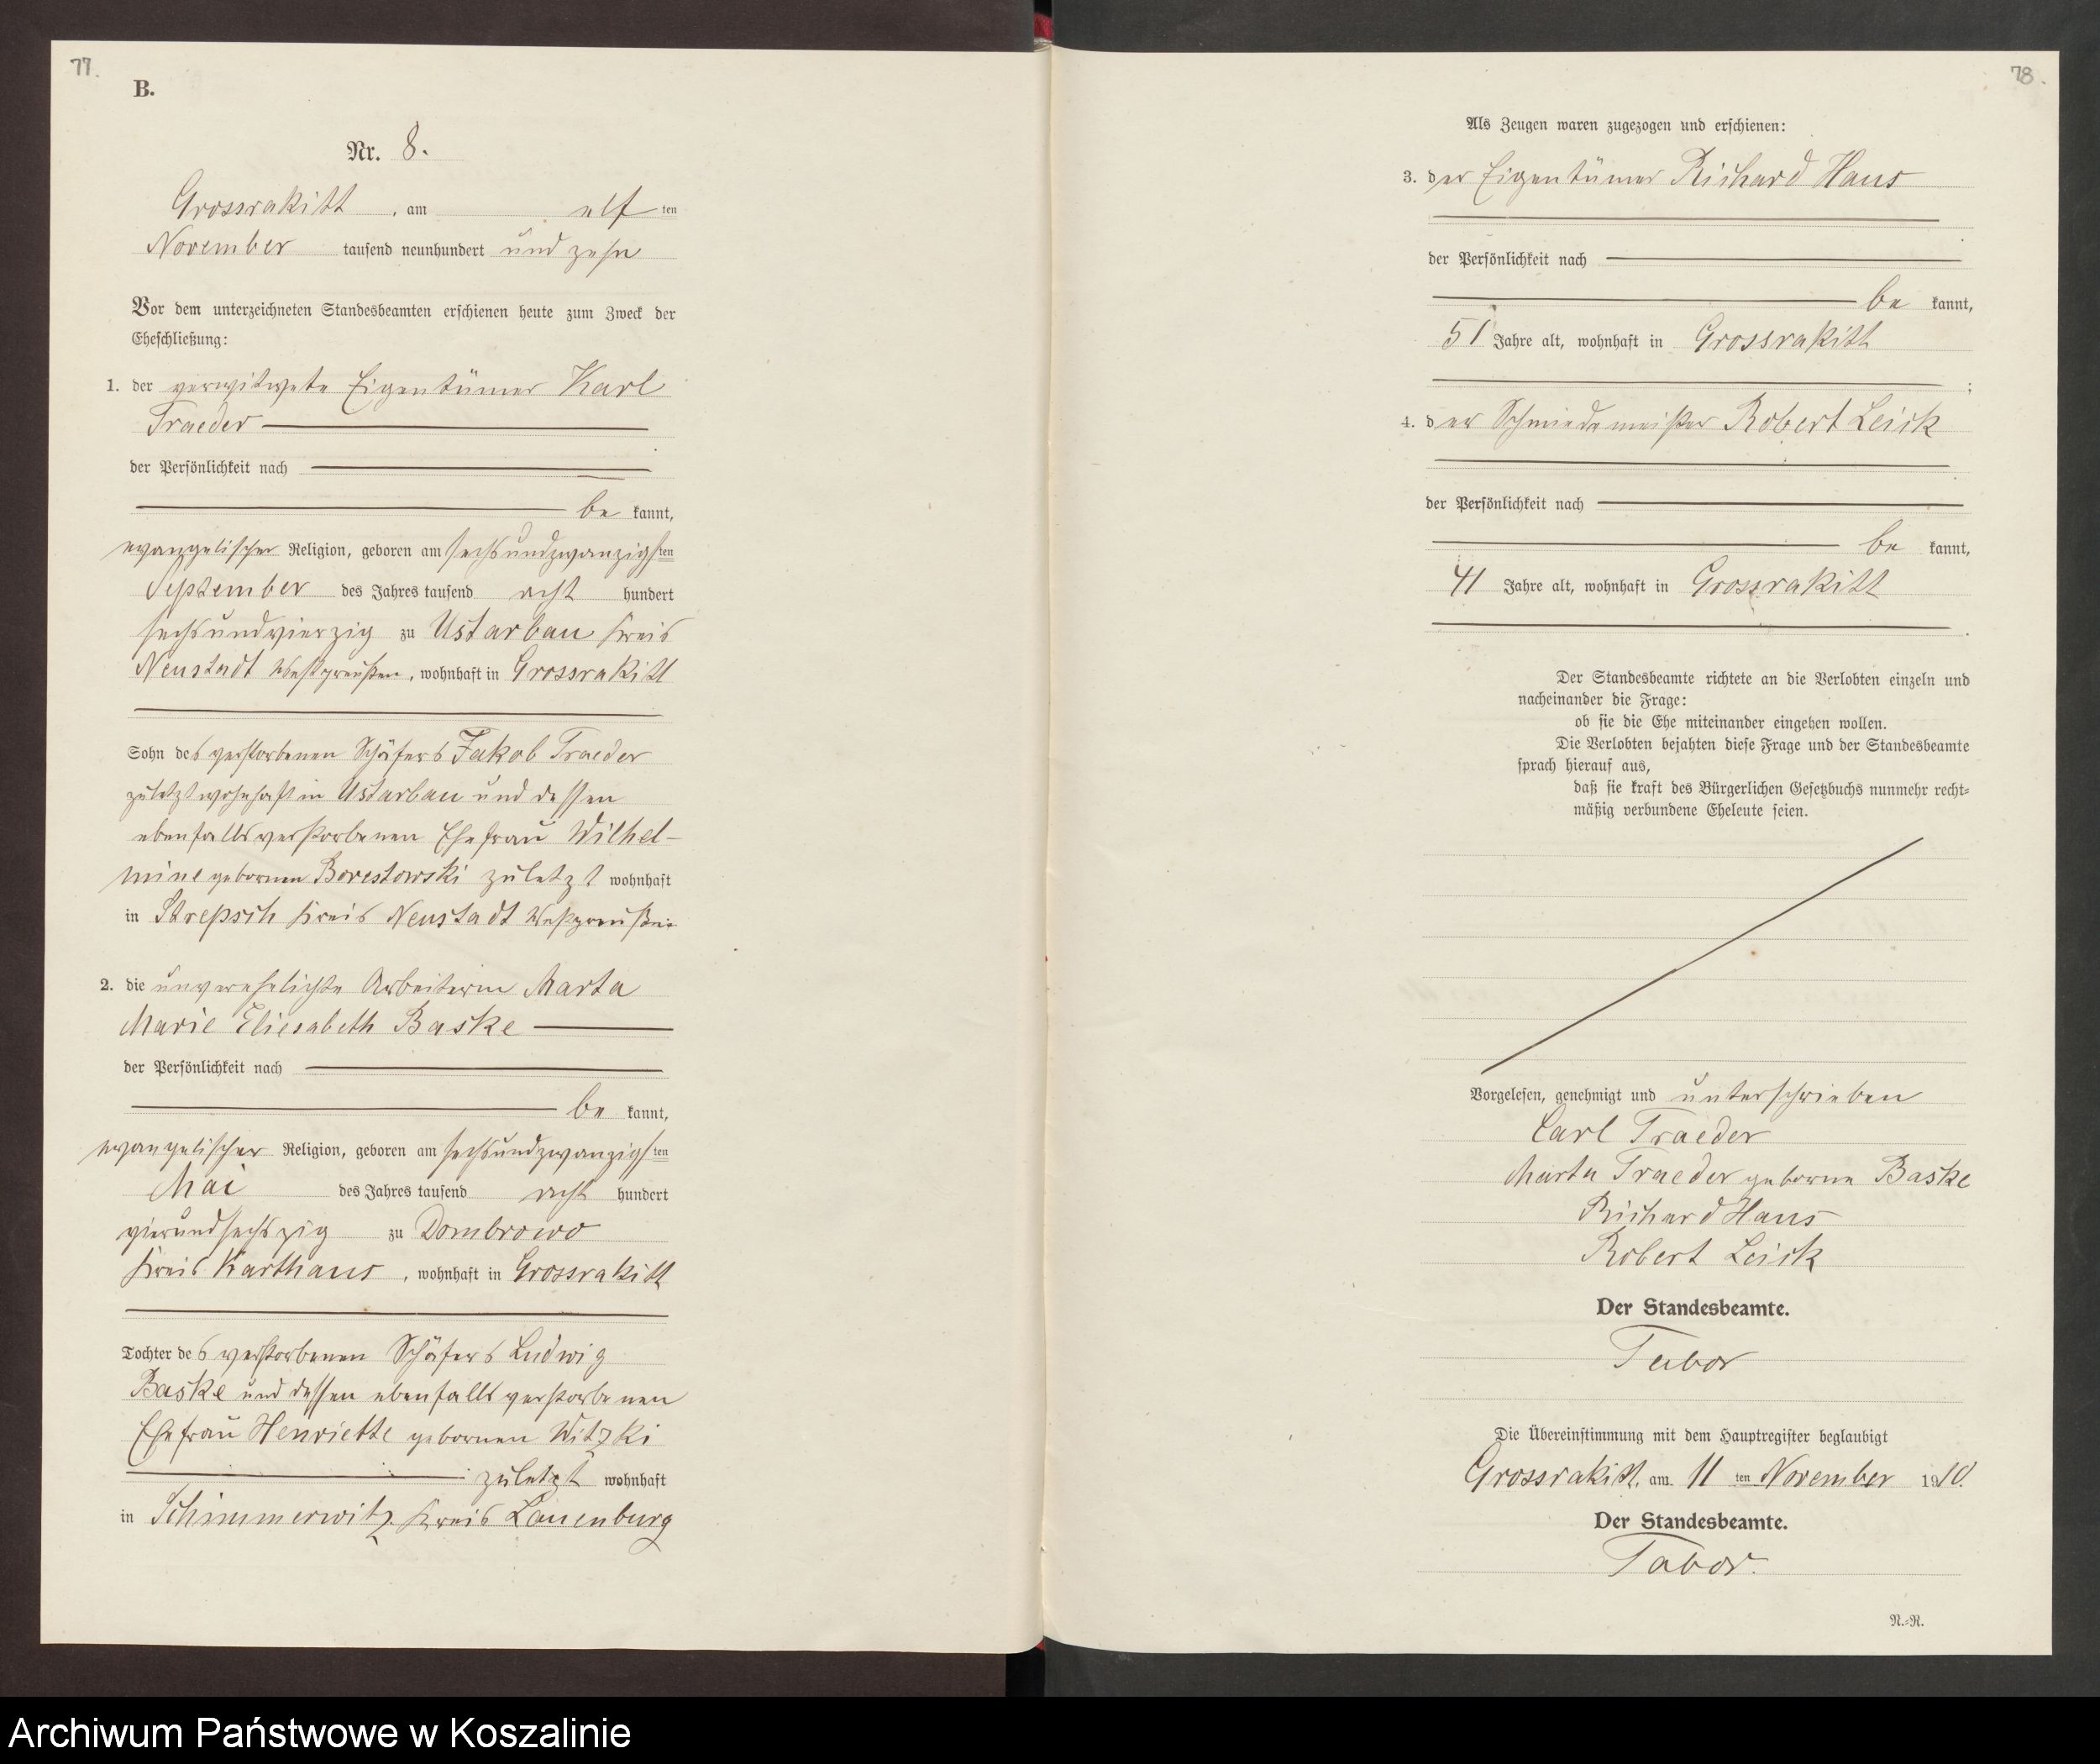 77.
B.
Nr. 8.
Grossrakitt, am elf ten
November tausend neunhundert und zehn
Vor dem unterzeichneten Standesbeamten erschienen heute zum Zweck der
Eheschließung:
1. der verwitwete Eigentümer Karl
Traeder
der Persönlichkeit nach
be kannt,
evangelischer Religion, geboren am sechsundzwanzigsten
September des Jahres tausend acht hundert
sechsundvierzig zu Ustarbau Kreis
Neustadt Westpreußen, wohnhaft in Grossrakitt
Sohn des verstorbenen Schäfers Jakob Traeder
zuletzt wohnhaft in Ustarbau und dessen
ebenfalls verstorbenen Ehefrau Wilhel-
mine gebornen Borestowski zuletzt wohnhaft
in Strepsch Kreis Neustadt Westpreußen
2. die unverehelichte Arbeiterin Marta
Marie Eliesabeth Baske
der Persönlichkeit nach
be kannt,
evangelischer Religion, geboren am sechsundzwanzigsten
Mai des Jahres tausend acht hundert
vierundsechszig zu Dombrowo
Kreis Karthaus, wohnhaft in Grossrakitt
Tochter des verstorbenen Schäfers Ludwig
Baske und dessen ebenfalls verstorbenen
Ehefrau Henriette gebornen Witzki
zuletzt wohnhaft
in Schimmerwitz Kreis Lauenburg
78.
Als Zeugen waren zugezogen und erschienen:
3. der Eigentümer Richard Haus
der Persönlichkeit nach
be kannt,
51 Jahre alt, wohnhaft in Grossrakitt
;
4. der Schmiedemeister Robert Leick
der Persönlichkeit nach
be kannt,
41 Jahre alt, wohnhaft in Grossrakitt
.
Der Standesbeamte richtete an die Verlobten einzeln und
nacheinander die Frage:
ob sie die Ehe miteinander eingehen wollen.
Die Verlobten bejahten diese Frage und der Standesbeamte
sprach hierauf aus,
daß sie kraft des Bürgerlichen Gesetzbuchs nunmehr recht-
mäßig verbundene Eheleute seien.
Vorgelesen, genehmigt und unterschrieben
Carl Traeder
Marta Traeder geborne Baske
Richard Haus
Robert Leick
Der Standesbeamte.
Tabor
Die Übereinstimmung mit dem Hauptregister beglaubigt
Grossrakitt, am 11 ten November 1910.
Der Standesbeamte.
Tabor.
N.-R.
Archiwum Państwowe w Koszalinie